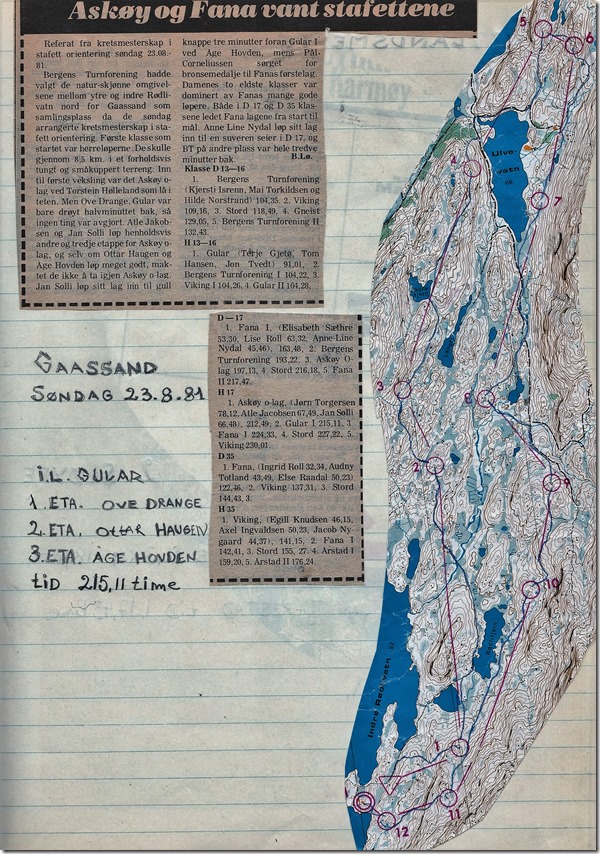 Askøy og Fana vant stafettene
Referat fra kretsmesterskap i
stafett orientering søndag 23.08.-
81.
Bergens Turnforening hadde
valgt de natur-skjønne omgivel-
sene mellom ytre og indre Rødli-
vatn nord for Gaassand som
samlingsplass da de søndag
arrangerte kretsmesterskap i sta-
fett orientering. Første klasse som
startet var herreløperne. De skulle
gjennom 8,5 km. i et forholdsvis
tungt og småkuppert terreng. Inn
til første veksling var det Askøy o-
lag ved Torstein Hølleland som lå i
teten. Men Ove Drange, Gular var
bare drøyt halvminuttet bak, så
ingen ting var avgjort. Atle Jakob-
sen og Jan Solli løp henholdsvis
andre og tredje etappe for Askøy o-
lag, og selv om Ottar Haugen og
Åge Hovden løp meget godt, mak-
tet de ikke å ta igjen Askøy o-lag.
Jan Solli løp sitt lag inn til gull
knappe tre minutter foran Gular I
ved Åge Hovden, mens Pål-
Corneliussen sørget for
bronsemedalje til Fanas førstelag.
Damenes to eldste klasser var
dominert av Fanas mange gode
løpere. Både i D 17 og D 35 klas-
sene ledet Fana lagene fra start til
mål. Anne Line Nydal løp sitt lag
inn til en suveren seier i D 17, og
BT på andre plass var hele tredve
minutter bak.
B.Lø.
Klasse D 13—16
1. Bergens Turnforening
(Kjersti Isrenn, Mai Torkildsen og
Hilde Norstrand) 104,35. 2. Viking
109,16, 3. Stord 118,49, 4. Gneist
129,05, 5. Bergens Turnforening II
132,43.
H 13—16
1. Gular (Terje Gjetø, Tom
Hansen, Jon Tvedt) 91,01, 2.
Bergens Turnforening I 104,22, 3.
Viking I 104,26, 4. Gular II 104,28.
D—17
1. Fana I, (Elisabeth Sæthre
53,30, Lise Roll 63,32, Anne-Line
Nydal 45,46), 163,48, 2. Bergens
Turnforening 193,22, 3. Askøy O-
lag 197,13, 4. Stord 216,18, 5. Fana
II 217,47.
H 17
1. Askøy o-lag, (Jørn Torgersen
78,12, Atle Jacobsen 67,49, Jan Solli
66,48), 212,49, 2. Gular I 215,11, 3.
Fana I 224,33, 4. Stord 227,22, 5.
Viking 230,01.
D 35
1. Fana, (Ingrid Roll 32,34, Audny
Totland 43,49, Else Raadal 50,23)
122,46, 2. Viking 137,31, 3. Stord
144,43, 3.
H 35
1. Viking, (Egill Knudsen 46,15,
Axel Ingvaldsen 50,23, Jacob Ny-
gaard 44,37), 141,15, 2. Fana I
142,41, 3. Stord 155, 27. 4. Årstad I
159,20, 5. Årstad II 176,24.
GAASSAND
SØNDAG 23.8.81
I.L. GULAR
1. ETA. OVE DRANGE
2. ETA. OTTAR HAUGEN
3. ETA. ÅGE HOVDEN
TID 215,11 TIME
5
6
Ulve-
vatn
4
7
3
8
2
9
10
Indre Rødlivatn
1
11
12